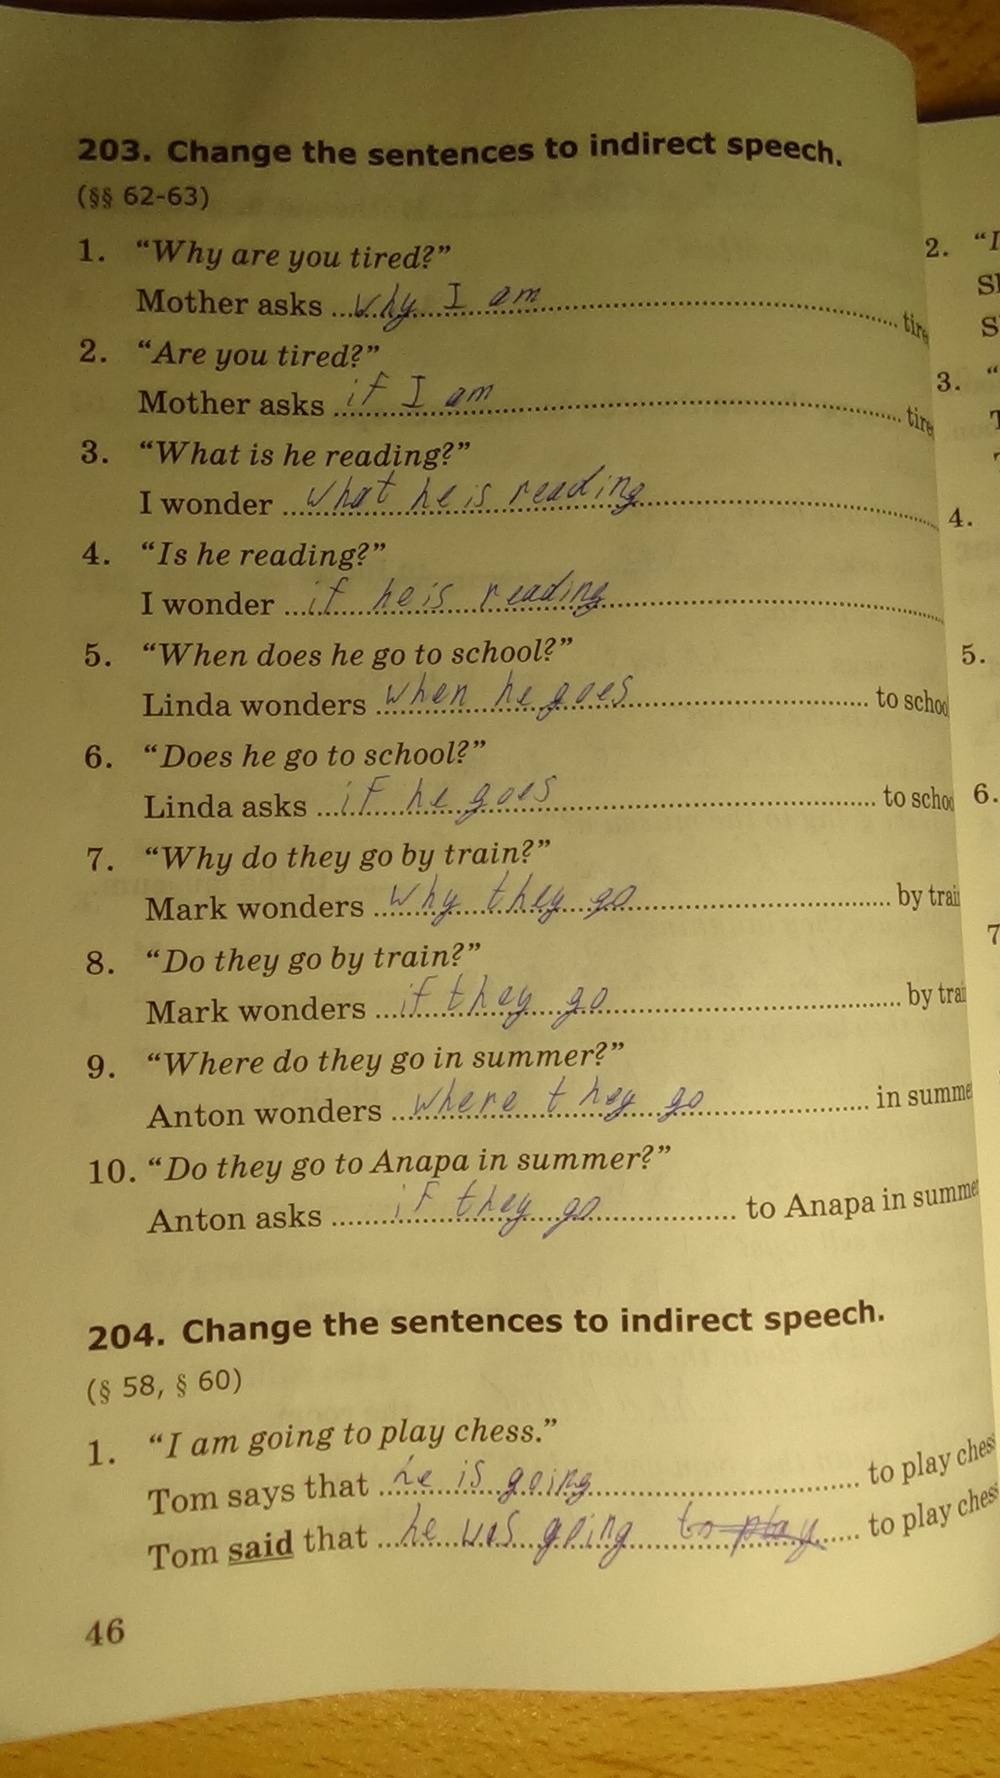 203. Change the sentences to indirect speech.
(§§ 62-63)
1. “Why are you tired?”
Mother asks ... why I am ... tire
2. “Are you tired?”
Mother asks ... if I am ... tire
3. “What is he reading?”
I wonder ... what he is reading ...
4. “Is he reading?”
I wonder ... if he is reading ...
5. “When does he go to school?”
Linda wonders ... when he goes ... to schoo
6. “Does he go to school?”
Linda asks ... if he goes ... to schoo
7. “Why do they go by train?”
Mark wonders ... why they go ... by trai
8. “Do they go by train?”
Mark wonders ... if they go ... by trai
9. “Where do they go in summer?”
Anton wonders ... where they go ... in summe
10. “Do they go to Anapa in summer?”
Anton asks ... if they go ... to Anapa in summe
204. Change the sentences to indirect speech.
(§ 58, § 60)
1. “I am going to play chess.”
Tom says that ... he is going ... to play ches
Tom said that ... he was going to play ... to play ches
46
2. “I
S
3. “
4.
5.
6.
7